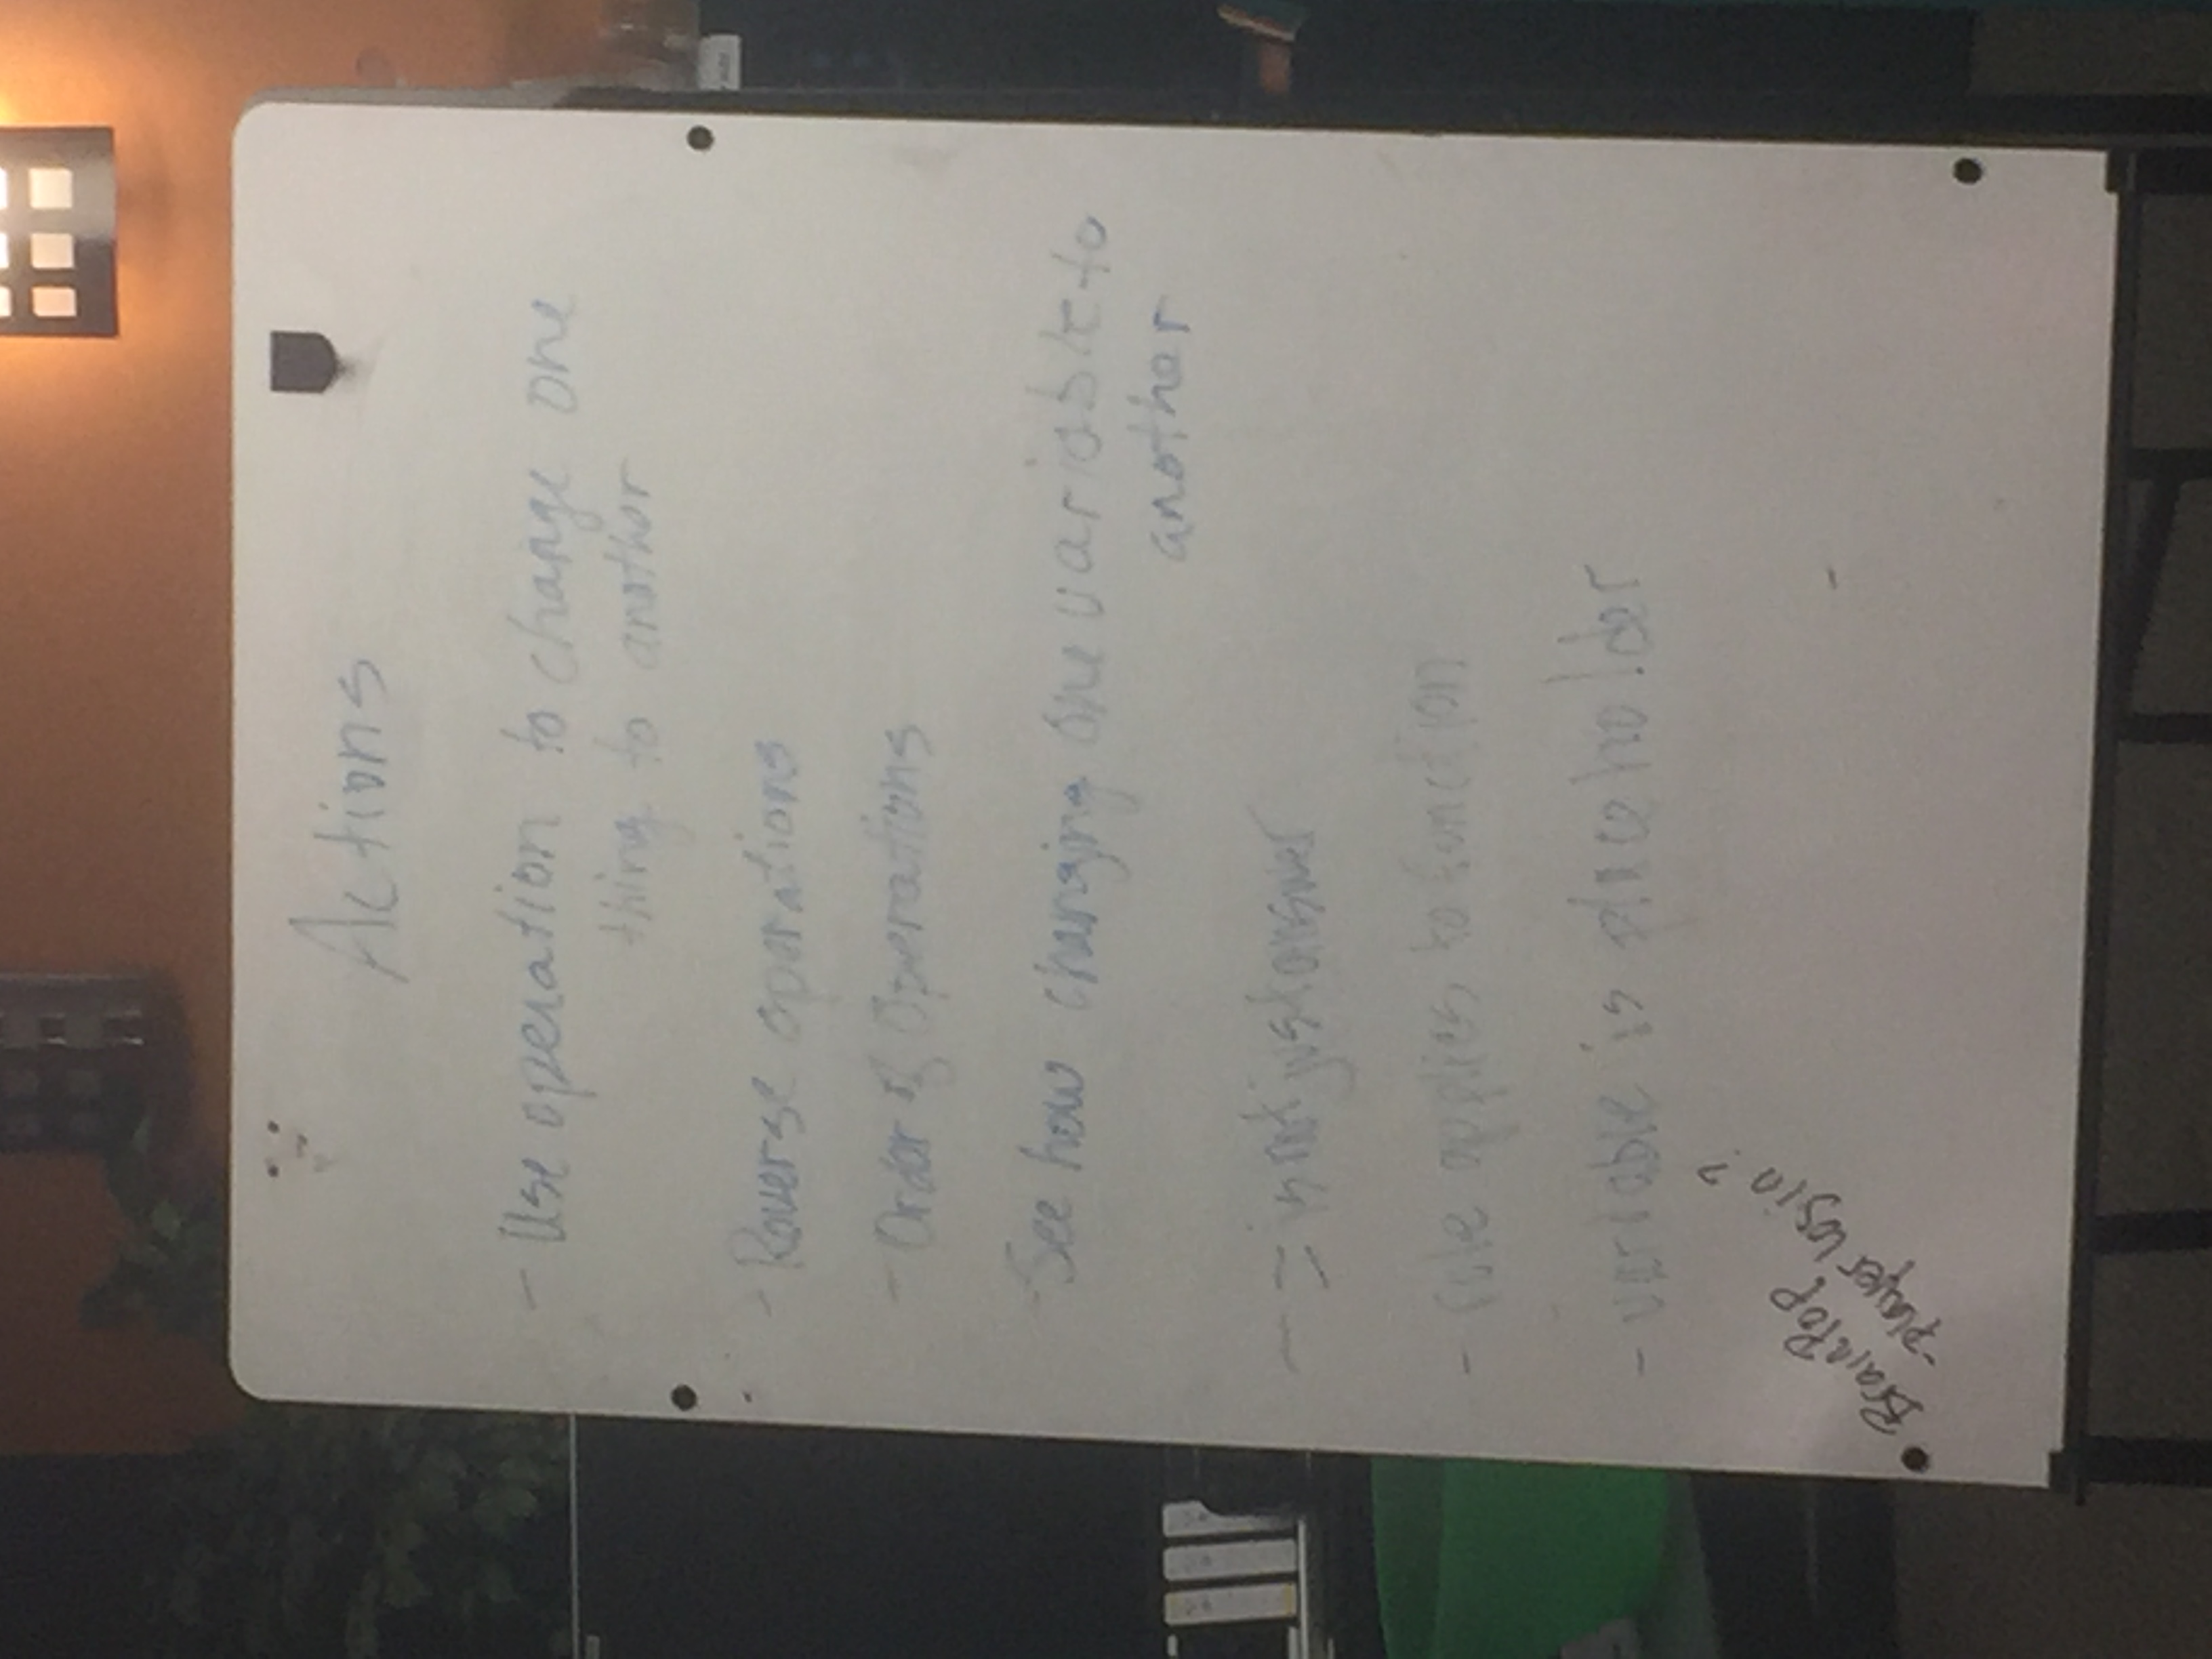 Actions
- Use operation to change one
thing to another
- Reverse operations
- Order of Operations
- See how changing one variable to
another
- = is not just answer
- rule applies to function
- variable is placeholder
BrainPop
- player login?